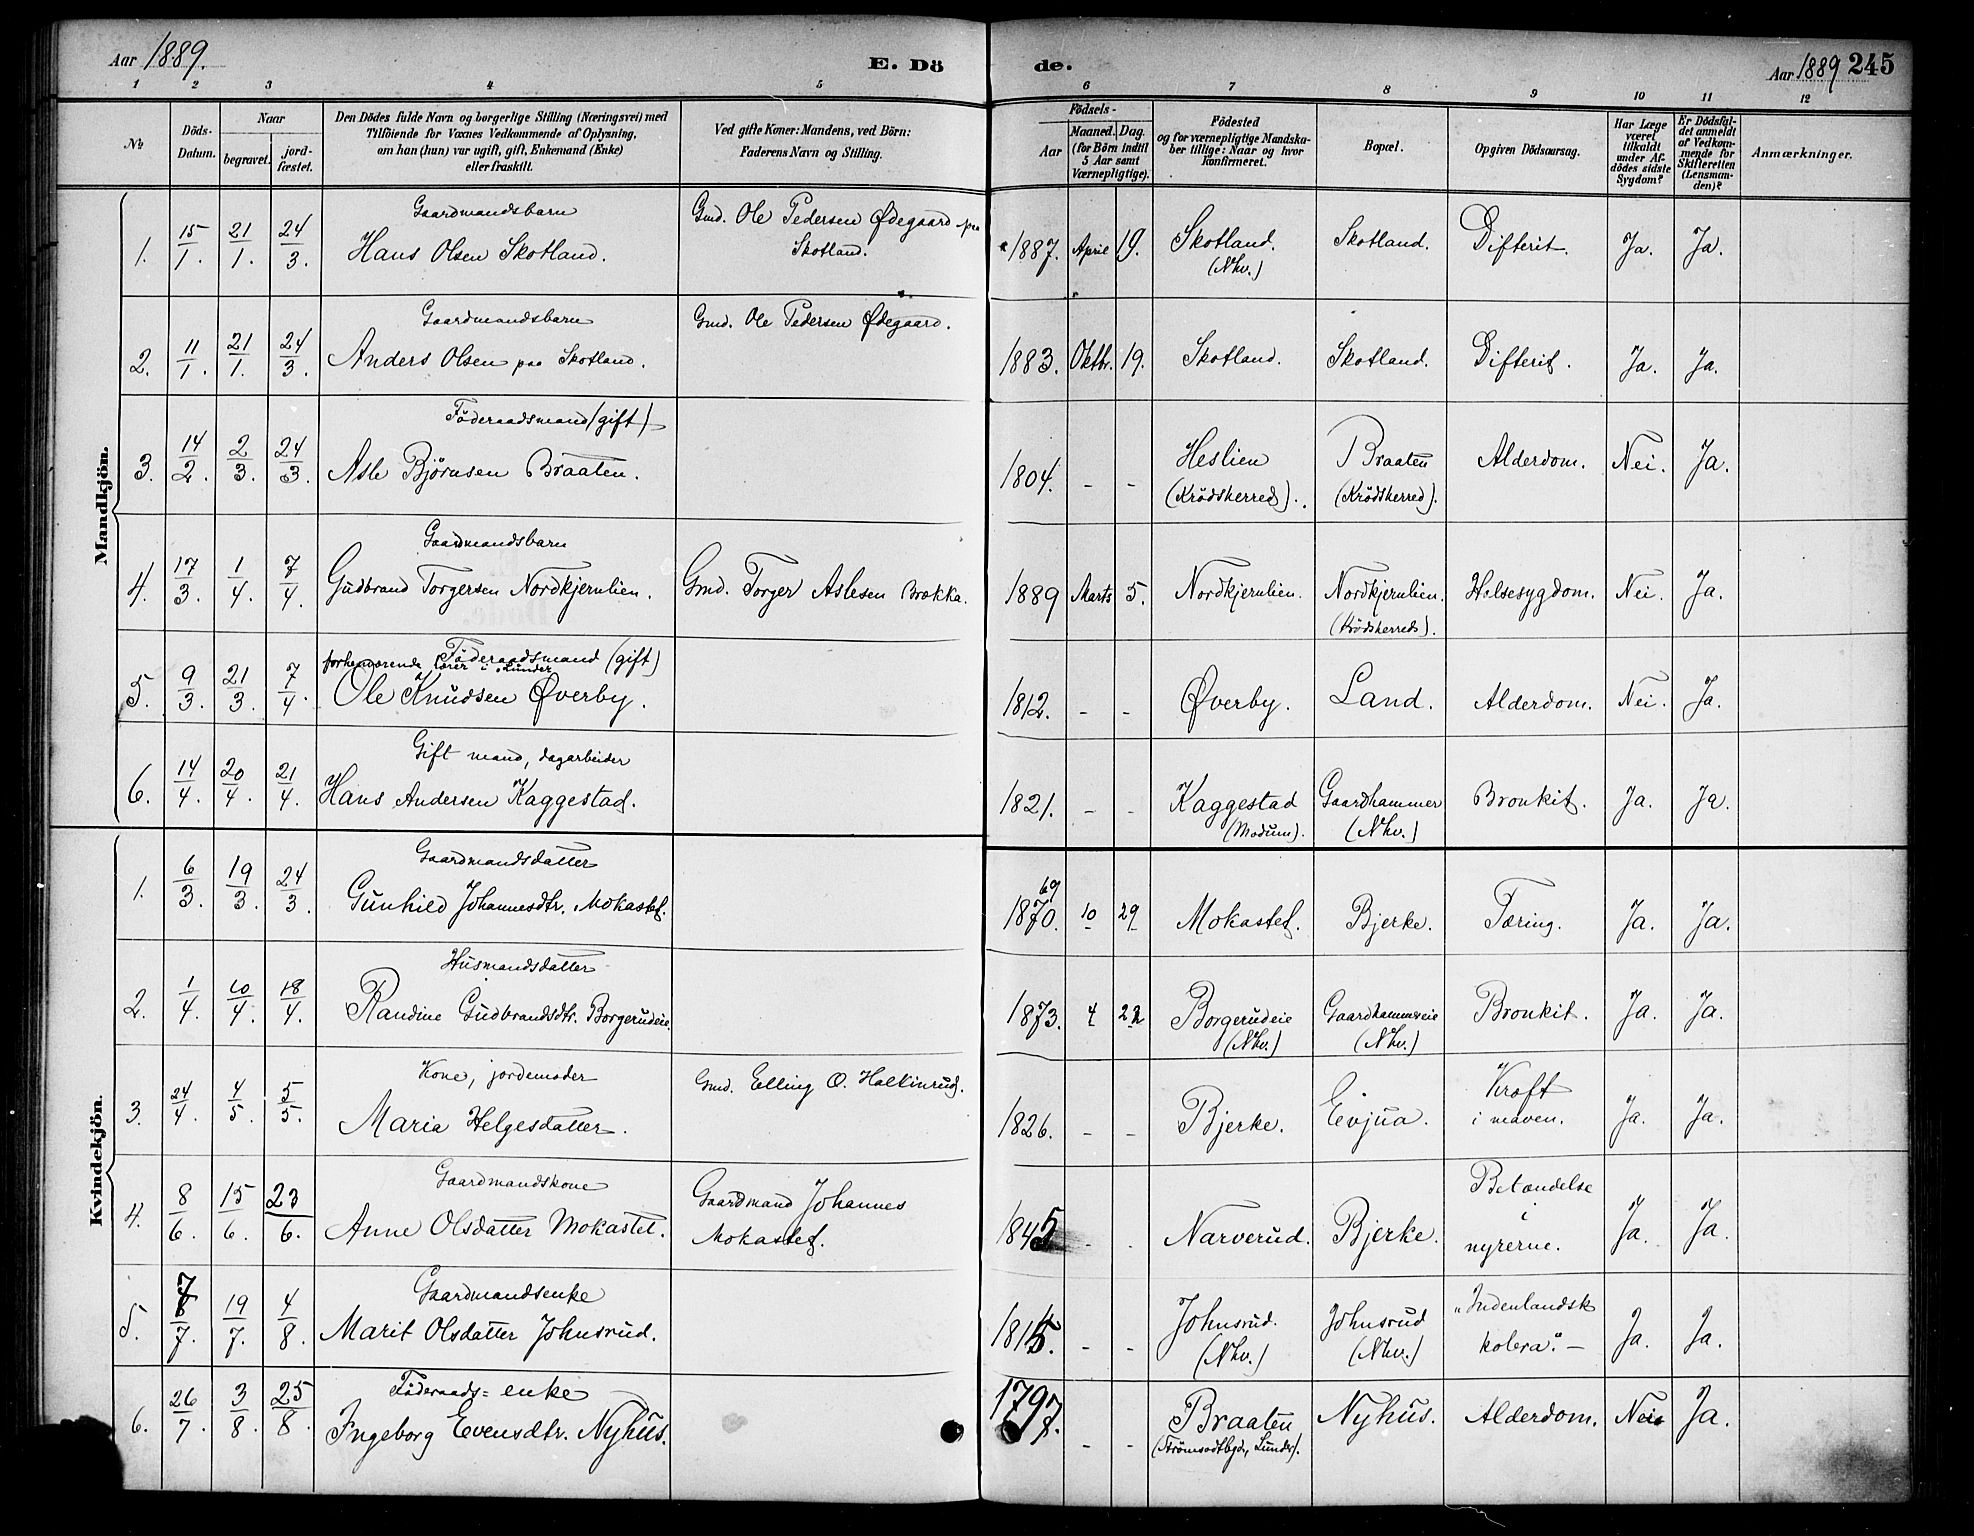 Aar 1889. E. Dö de. Aar 1889 245
1 2 3 4 5 6 7 8 9 10 11 12
№
Döds-Datum.
Naar
begravet.
jord-fæstet.
Den Dödes fulde Navn og borgerlige Stilling (Næringsvei) med
Tilföiende for Voxnes Vedkommende af Oplysning,
om han (hun) var ugift, gift, Enkemand (Enke)
eller fraskilt.
Ved gifte Koner: Mandens, ved Börn:
Faderens Navn og Stilling.
Födsels-
Aar
Maaned. Dag.
(for Börn indtil
5 Aar samt
Værnepligtige).
Födested
og for værnepligtige Mandska-
ber tillige: Naar og hvor
konfirmeret.
Bopæl.
Opgiven Dödsaarsag.
Har Læge
været
tilkaldt
under Af-
dödes sidste
Sygdom?
Er Dödsfal-
det anmeldt
af Vedkom-
mende for
Skifteretten
(Lensman-
den)?
Anmærkninger.
Mandkjön.
1. 15/1. 21/1. 24/3. Gaardmandsbarn
Hans Olsen Skotland.
Gmd. Ole Pedersen Ødegaard paa
Skotland.
1887. April 19. Skotland.
(Nhv.)
Skotland. Difterit. Ja. Ja.
2. 11/1. 21/1. 24/3. Gaardmandsbarn
Anders Olsen paa Skotland.
Gmd. Ole Pedersen Ødegaard.
1883. Oktbr. 19. Skotland. Skotland. Difterit. Ja. Ja.
3. 14/2. 2/3. 24/3. Föderaadsmand (gift)
Asle Björnsen Braaten.
1804. - - Heslien
(Krödsherred).
Braaten
(Krödsherred).
Alderdom. Nei. Ja.
4. 17/3. 1/4. 7/4. Gaardmandsbarn
Gudbrand Torgersen Nordkjernlien.
Gmd. Torger Aslesen Brokka.
1889 Marts 5. Nordkjernlien. Nordkjernlien.
(Krödsherred).
Halsesygdom. Nei. Ja.
5. 9/3. 21/3. 7/4. Föderaadsmand (gift)
forhenværende lærer i Lunder
Ole Knudsen Øverby.
1812. - - Øverby. Land. Alderdom. Nei. Ja.
6. 14/4. 20/4. 21/4. Gift mand, dagarbeider
Hans Andersen Kaggestad.
1821. - - Kaggestad
(Modum).
Gaardhammer
(Nhv.)
Bronkit. Ja. Ja.
Kvindekjön.
1. 6/3. 19/3. 24/3. Gaardmandsdatter
Gunhild Johannesdtr. Mokastet.
69
1870. 10 29 Mokastet. Bjerke. Tæring. Ja. Ja.
2. 1/4. 10/4. 18/4. Husmandsdatter
Randine Gudbrandsdtr. Borgerudeie
1873. 4 22 Borgerudeie
(Nhv.)
Gaardhammereie
(Nhv.)
Bronkit. Ja. Ja.
3. 24/4. 4/5. 5/5. Kone, jordemoder
Maria Helgesdatter.
Gmd. Elling O. Halkinrud.
1826. - - Bjerke. Evjua. Kræft
i maven.
Ja. Ja.
4. 8/6. 15/6. 23/6. Gaardmandskone
Anne Olsdatter Mokastet.
Gaardmand Johannes
Mokastet.
1845 - - Narverud. Bjerke. Betændelse
i
nyrerne.
Ja. Ja.
5. 7/7. 19/7. 4/8. Gaardmandsenke
Marit Olsdatter Johnsrud.
1815. - - Johnsrud.
(Nhv.)
Johnsrud
(Nhv.)
"Indenlandsk
kolera". —
Ja. Ja.
6. 26/7. 3/8. 25/8. Föderaads=enke
Ingeborg Evensdtr. Nyhus.
1797. - - Braaten
(Strömsodtbgd., Lunder).
Nyhus. Alderdom. Nei Ja.